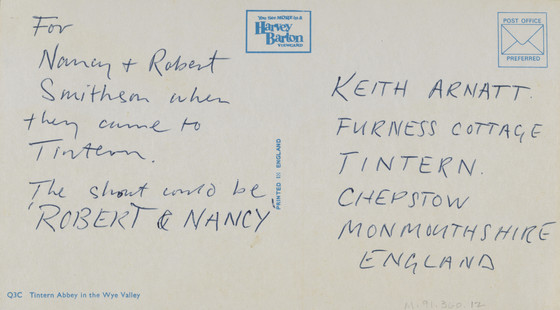 For
Nancy + Robert
Smithson when
they came to
Tintern.
The shout would be
'ROBERT & NANCY'
Q3C Tintern Abbey in the Wye Valley
You See MORE in a
Harvey
Barton
VIEWCARD
PRINTED IN ENGLAND
POST OFFICE
PREFERRED
KEITH ARNATT.
FURNESS COTTAGE
TINTERN.
CHEPSTOW
MONMOUTHSHIRE
ENGLAND